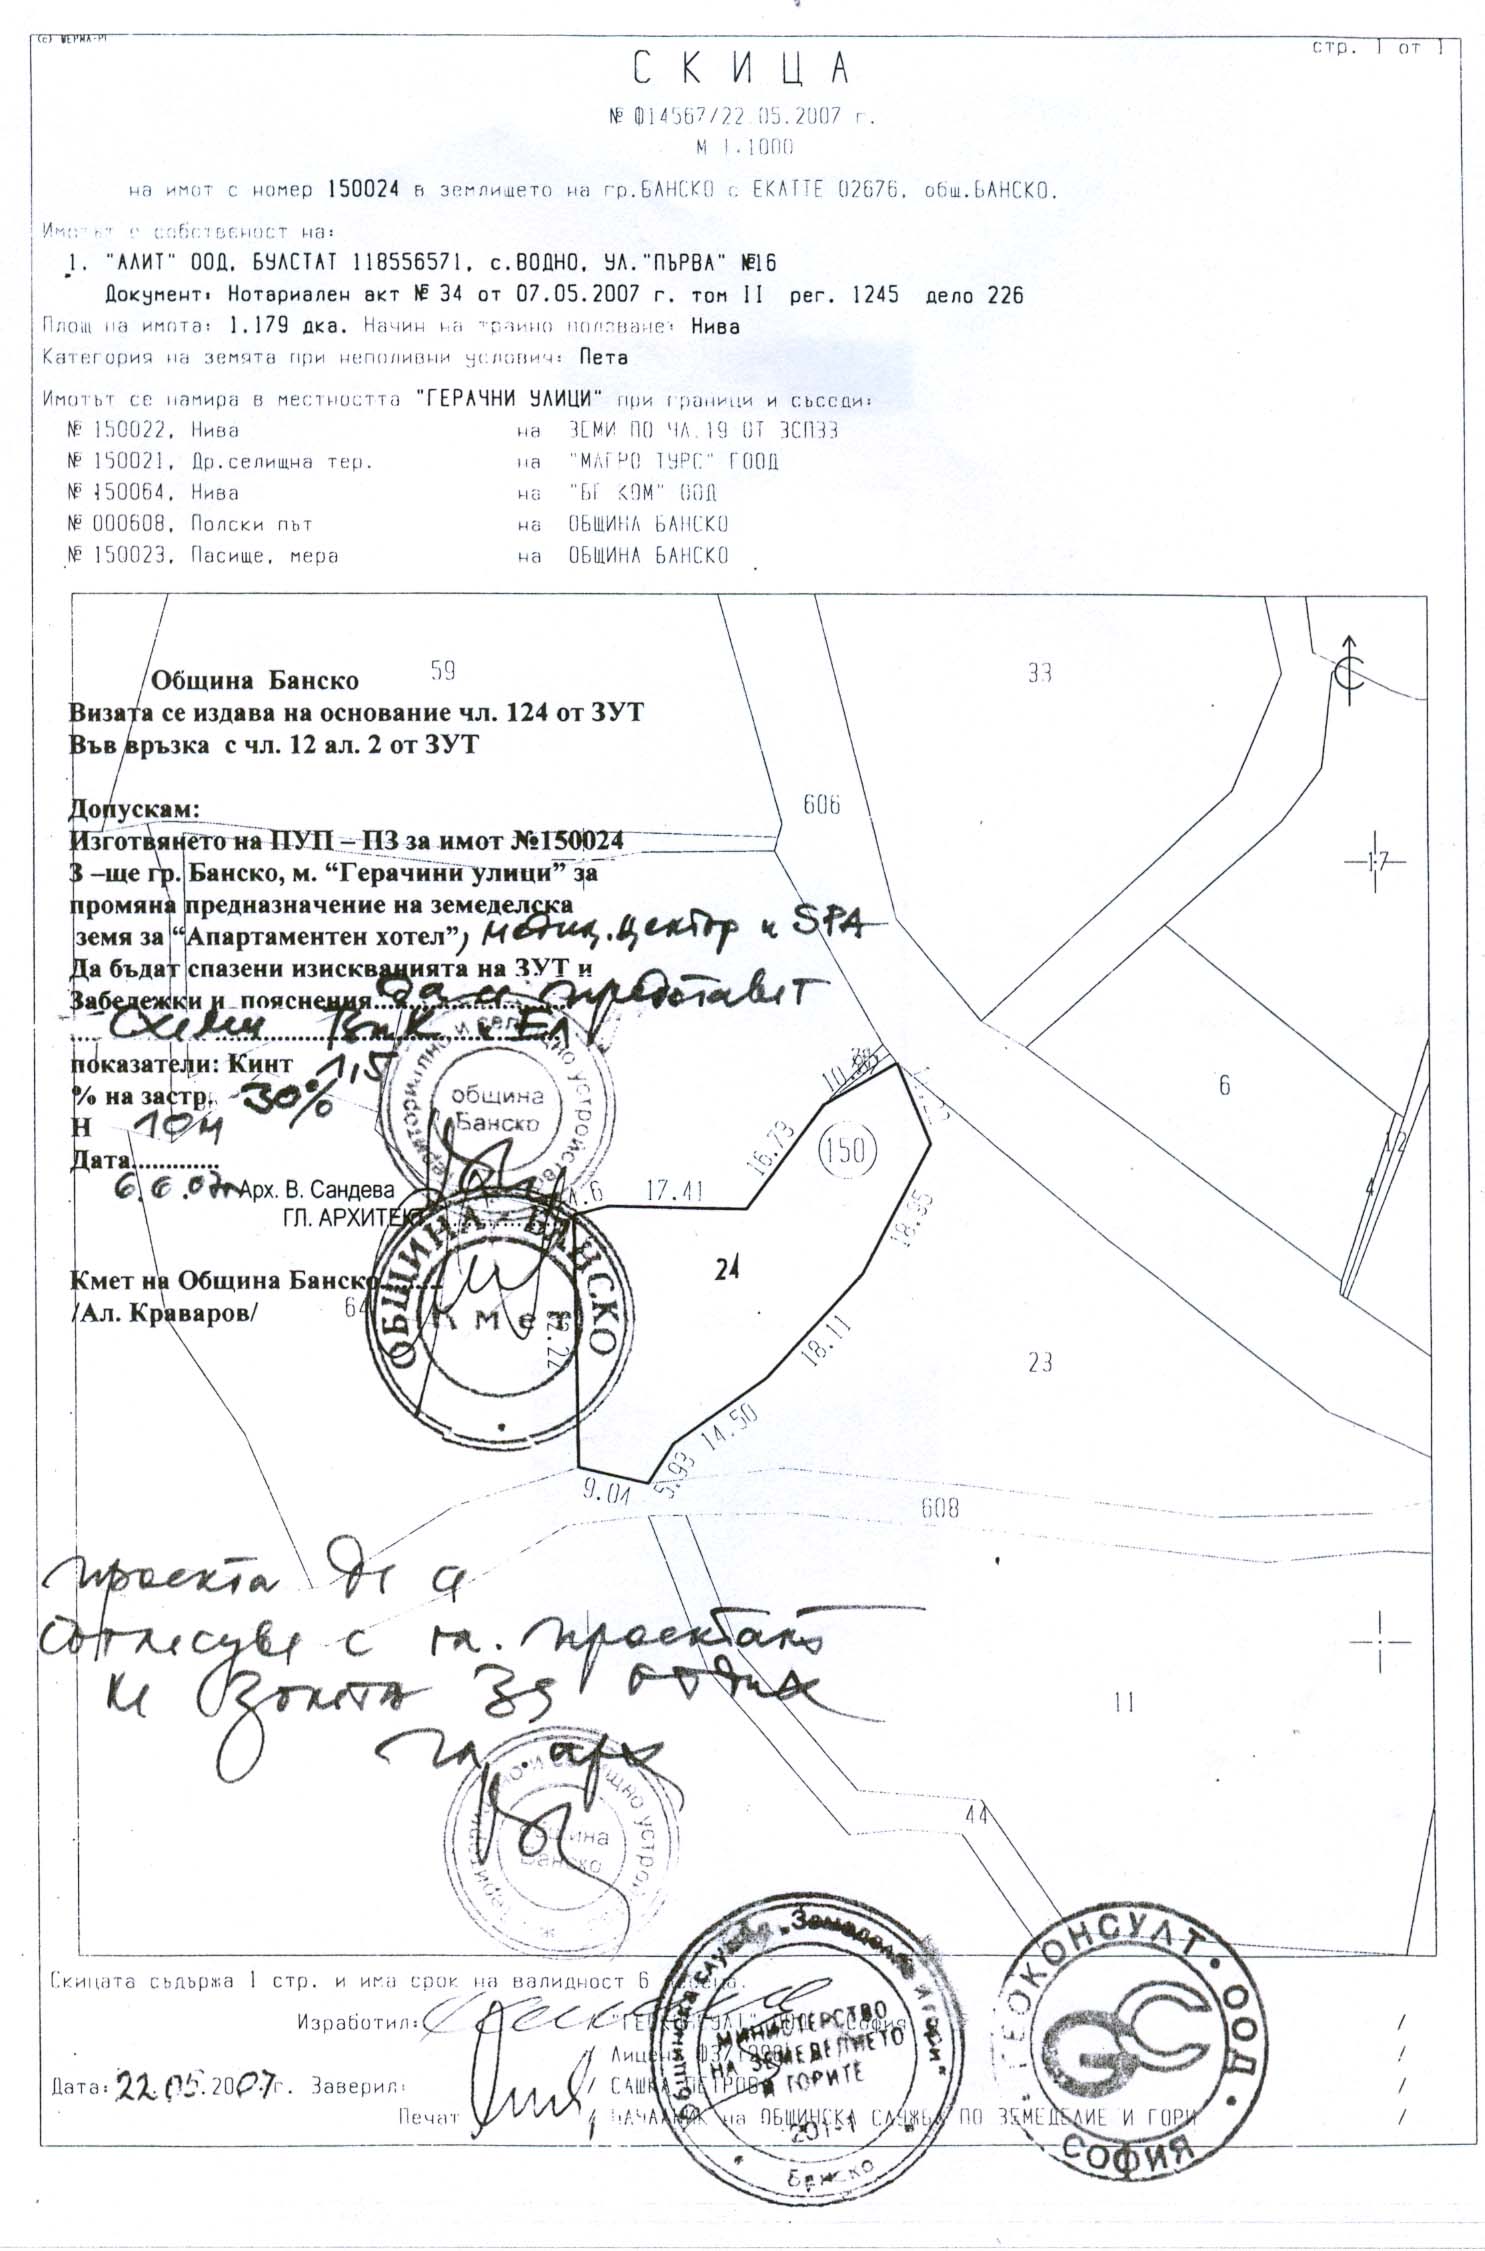 (c) ФЕРМА-РГ
стр. 1 от 1
СКИЦА
№ Ф14567/22.05.2007 г.
М 1:1000
на имот с номер 150024 в землището на гр.БАНСКО с ЕКАТТЕ 02676, общ.БАНСКО.
Имотът е собственост на:
1. "АЛИТ" ООД, БУЛСТАТ 118556571, с.ВОДНО, УЛ."ПЪРВА" №16
Документ: Нотариален акт № 34 от 07.05.2007 г. том II рег. 1245 дело 226
Площ на имота: 1.179 дка. Начин на трайно ползване: Нива
Категория на земята при неполивни условия: Пета
Имотът се намира в местността "ГЕРАЧНИ УЛИЦИ" при граници и съседи:
№ 150022, Нива на ЗЕМИ ПО ЧЛ.19 ОТ ЗСПЗЗ
№ 150021, Др.селищна тер. на "МАГРО ТУРС" ГООД
№ 150064, Нива на "БГ КОМ" ООД
№ 000608, Полски път на ОБЩИНА БАНСКО
№ 150023, Пасище, мера на ОБЩИНА БАНСКО
59
33
С
Община Банско
Визата се издава на основание чл. 124 от ЗУТ
Във връзка с чл. 12 ал. 2 от ЗУТ
606
17
Допускам:
Изготвянето на ПУП – ПЗ за имот №150024
З –ще гр. Банско, м. “Герачини улици” за
промяна предназначение на земеделска
земя за “Апартаментен хотел”, медиц. център и SPA
Да бъдат спазени изискванията на ЗУТ и
Забележки и пояснения... да се представят
схеми ВиК и Ел
показатели: Кинт 1,5
% на застр. 30%
Н 10м
Дата.............
6.6.07г Арх. В. Сандева
ГЛ. АРХИТЕКТ
община
Банско
6
12
4
150
16.79
17.41
18.95
24
Кмет на Община Банско.........
/Ал. Краваров/
64
ОБЩИНА - БАНСКО
Кмет
18.11
23
14.50
5.93
9.04
608
проекта да се
съгласува с гл. проектант
на зоната за отдих
гл. арх
община
Банско
11
44
Скицата съдържа 1 стр. и има срок на валидност 6 месеца.
Изработил:
Дата: 22.05.2007г. Заверил: / САШКА ПЕТРОВА /
Печат / НАЧАЛНИК на ОБЩИНСКА СЛУЖБА ПО ЗЕМЕДЕЛИЕ И ГОРИ /
Общинска служба "Земеделие и гори"
МИНИСТЕРСТВО
НА ЗЕМЕДЕЛИЕТО
И ГОРИТЕ
201-1
Банско
"ГЕОКОНСУЛТ" ООД
GC
СОФИЯ